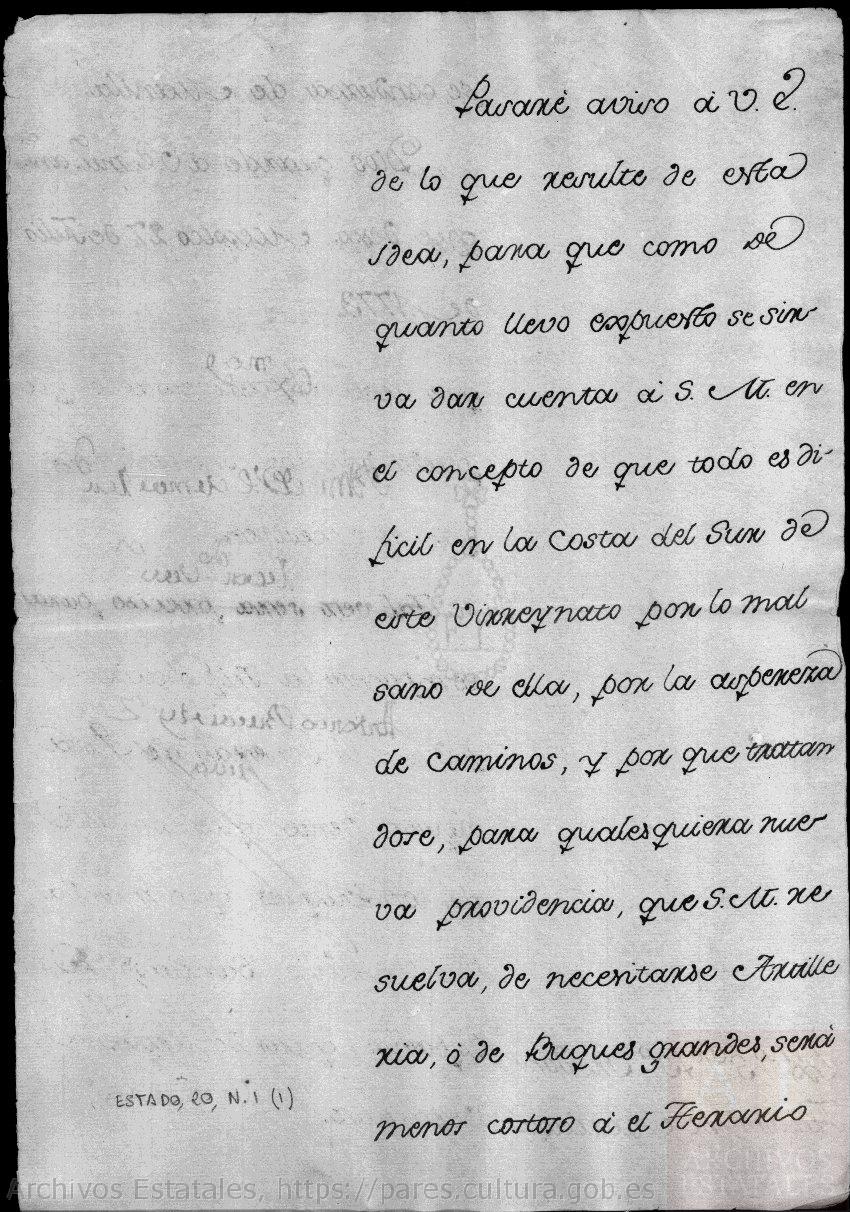 Pasarè aviso à V. E.
de lo que resulte de esta
idea, para que como de
quanto llevo expuesto se sir-
va dar cuenta à S. M. en
el concepto de que todo es di-
ficil en la Costa del Sur de
este Virreynato por lo mal
sano de ella, por la aspereza
de caminos, y por que tratan
dose, para qualesquiera nue-
va providencia, que S. M. re
suelva, de necesitarse Artille
ria, ò de Buques grandes, serà
menos costoso à el Herario
ESTADO, 20, N. 1 (1)
ARCHIVOS
ESTATALES
Archivos Estatales, https://pares.cultura.gob.es